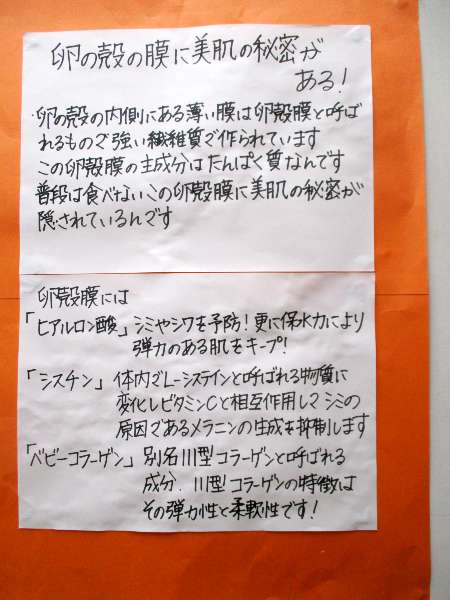 卵の殻の膜に美肌の秘密が
ある!
・卵の殻の内側にある薄い膜は卵殻膜と呼ば
れるもので強い繊維質で作られています
この卵殻膜の主成分はたんぱく質なんです
普段は食べないこの卵殻膜に美肌の秘密が
隠されているんです
卵殻膜には
「ヒアルロン酸」シミやシワを予防!更に保水力により
弾力のある肌をキープ!
「シスチン」体内でL-システインと呼ばれる物質に
変化しビタミンCと相互作用してシミの
原因であるメラニンの生成を抑制します
「ベビーコラーゲン」別名III型コラーゲンと呼ばれる
成分.III型コラーゲンの特徴は
その弾力性と柔軟性です!